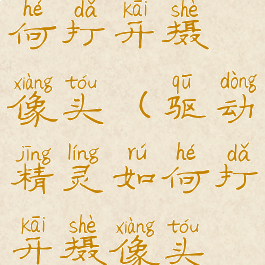 hé dǎ kāi shè
何打开摄
xiàng tóu qū dòng
像头（驱动
jīng líng rú hé dǎ
精灵如何打
kāi shè xiàng tóu
开摄像头